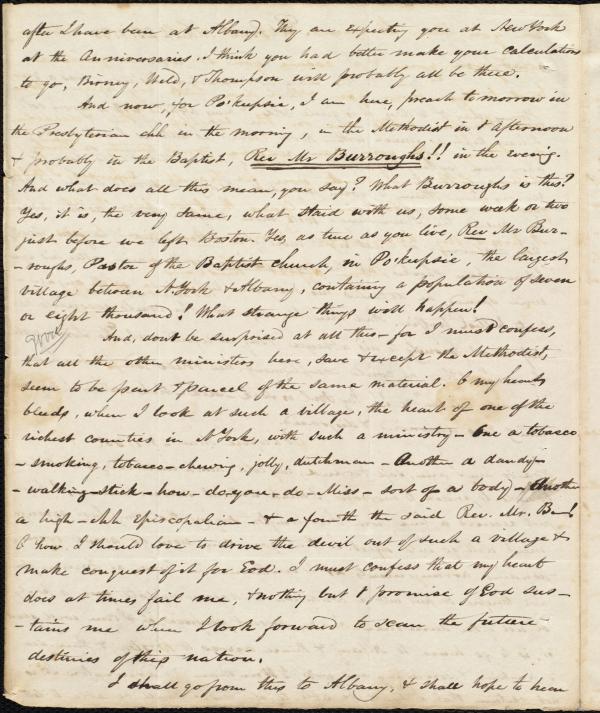 after I have been at Albany. They are expecting you at New York
at the Anniversaries. I think you had better make your calculations
to go, Birney, Weld, & Thompson will probably all be there.
And now, for Po'keepsie, I am here, preach tomorrow in
the Presbyterian chh in the morning, in the Methodist in t afternoon
& probably in the Baptist, Rev Mr Burroughs!! in the evening.
And what does all this mean, you say? What Burroughs is this?
Yes, it is, the very same, what staid with us, some week or two
just before we left Boston. Yes, as true as you live, Rev Mr Bur-
-roughs, Pastor of the Baptist church, in Po'keepsie, the largest
village between N. York & Albany, containing a population of seven
or eight thousand! What strange things will happen!
And, dont be surprised at all this - for I must confess,
that all the other ministers here, save & except the Methodist,
seem to be part & parcel of the same material. O my heart
bleeds, when I look at such a village, the heart of one of the
richest counties in N York, with such a ministry - One a tobacco
- smoking, tobacco - chewing, jolly, dutchman - Another a dandy -
- walking - stick - how - do, you - do - Miss - sort of a body - Another
a high - chh Episcopalian - & a fourth the said Rev. Mr. B-!
O how I should love to drive the devil out of such a village &
make conquest of it for God. I must confess that my heart
does at times fail me, & nothing but t promise of God sus-
-tains me when I look forward to scan the future
destinies of this nation.
I shall go from this to Albany, & shall hope to hear